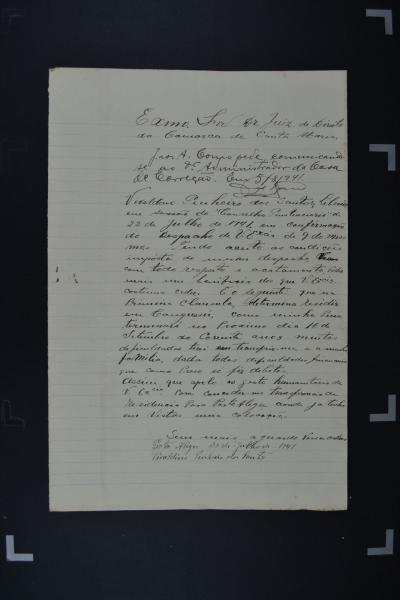 Exmo. Snr. Dr. Juiz de Direito
da Comarca de Santa Maria.
J. aos A. Como pede, comunicando-
se ao Sr. Administrador da Casa
de Correção. Em 5/8/941.
Vivaldino Pinheiro dos Santos,
em sessão do Conselho Penitenciario de
22 de Julho de 1941, em confirmação
do despacho de V. Excia. de 9 do mesmo
mes. Tendo aceito as condições
imposta do mesmo despacho, Vem
com todo respeito e acatamento, pedir
mais um beneficio dos que V. Excia.
costuma ceder. É o seguinte que na
Primeira Clausula, determina residir
em Cangussú, como minha Pena
terminará no Proximo dia 16 de
Setembro do Corrente anos, muitas
dificuldades terei em transferir-me e a minha
familia, dada todas dificuldades financeiras
que como Preso só fiz debitos.
Assim que apelo ao gesto humanitario de
V. Excia. Para conceder-me transferencia de
Residencia Para Porto Alegre aonde já tenho
em Vistas uma colocação.
Sem mais, aguardo
Porto Alegre de Julho de 1941
Vivaldino Pinheiro dos Santos